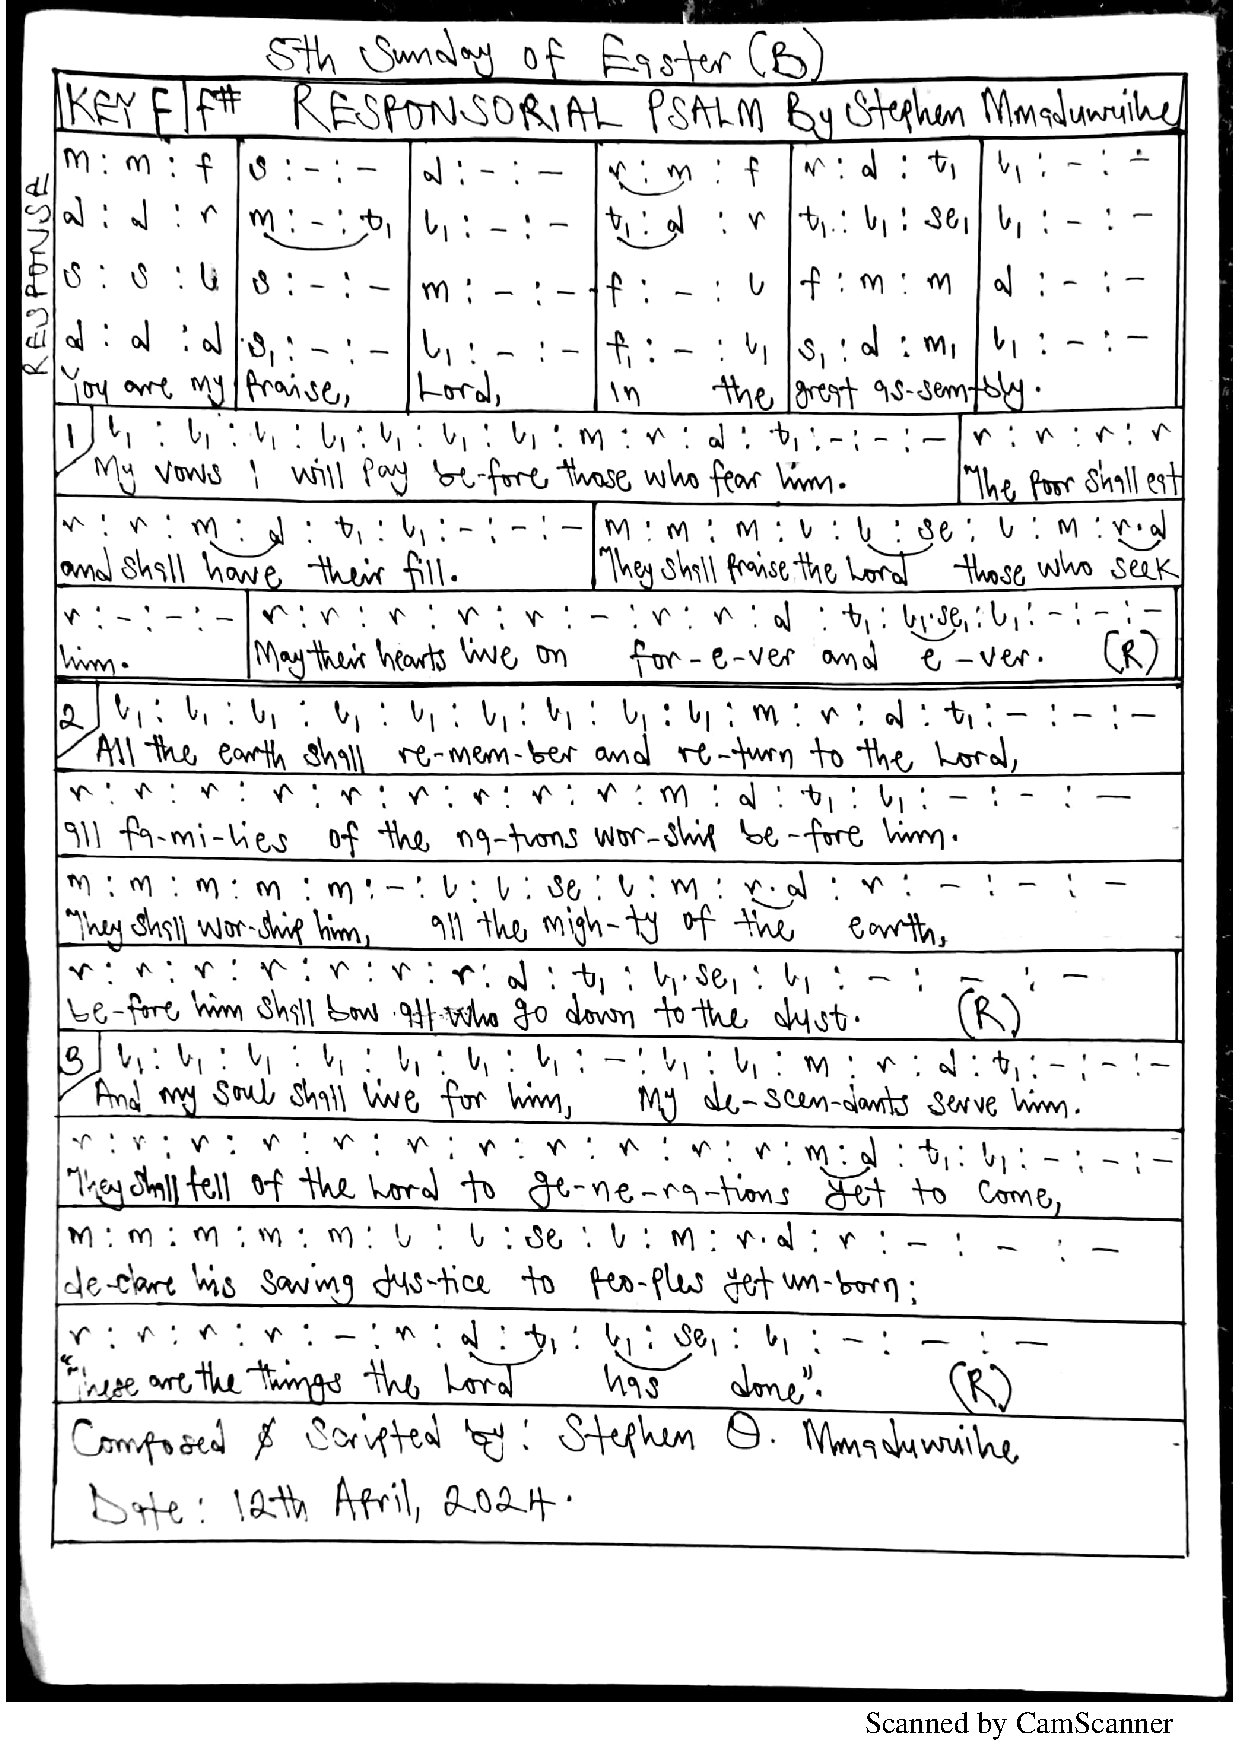 5th Sunday of Easter (B)
KEY F/F# RESPONSORIAL PSALM By Stephen Mmaduwuihe
RESPONSE
m : m : f | s : - : - | d : - : - | r : m : f | r : d : t₁ | l₁ : - : -
d : d : r | m : - : t₁ | l₁ : - : - | t₁ : d : r | t₁ : l₁ : se₁ | l₁ : - : -
s : s : l | s : - : - | m : - : - | f : - : l | f : m : m | d : - : -
d : d : d | s₁ : - : - | l₁ : - : - | f₁ : - : l₁ | s₁ : d : m₁ | l₁ : - : -
You are my praise, Lord, in the great as-sem-bly.
1 l₁ : l₁ : l₁ : l₁ : l₁ : l₁ : l₁ : m : r : d : t₁ : - : - : - | r : r : r : r
My vows I will pay be-fore those who fear him. The poor shall eat
r : r : m : d : t₁ : l₁ : - : - : - | m : m : m : l : l : se : l : m : r.d
and shall have their fill. They shall praise the Lord those who seek
r : - : - : - | r : r : r : r : r : - : r : r : d : t₁ : l₁.se₁ : l₁ : - : - : -
him. May their hearts live on for-e-ver and e-ver. (R)
2 l₁ : l₁ : l₁ : l₁ : l₁ : l₁ : l₁ : l₁ : l₁ : m : r : d : t₁ : - : - : -
All the earth shall re-mem-ber and re-turn to the Lord,
r : r : r : r : r : r : r : r : r : m : d : t₁ : l₁ : - : - : -
all fa-mi-lies of the na-tions wor-ship be-fore him.
m : m : m : m : m : - : l : l : se : l : m : r.d : r : - : - : -
They shall wor-ship him, all the migh-ty of the earth,
r : r : r : r : r : r : r : d : t₁ : l₁.se₁ : l₁ : - : - : -
be-fore him shall bow all who go down to the dust. (R)
3 l₁ : l₁ : l₁ : l₁ : l₁ : l₁ : l₁ : - : l₁ : l₁ : m : r : d : t₁ : - : - : -
And my soul shall live for him, My de-scen-dants serve him.
r : r : r : r : r : r : r : r : r : r : r : m : d : t₁ : l₁ : - : - : -
They shall tell of the Lord to ge-ne-ra-tions yet to come,
m : m : m : m : m : l : l : se : l : m : r.d : r : - : - : -
de-clare his saving jus-tice to peo-ples yet un-born:
r : r : r : r : - : r : d : t₁ : l₁ : se₁ : l₁ : - : - : -
"These are the things the Lord has done". (R)
Composed & Scripted by: Stephen O. Mmaduwuihe
Date: 12th April, 2024.
Scanned by CamScanner